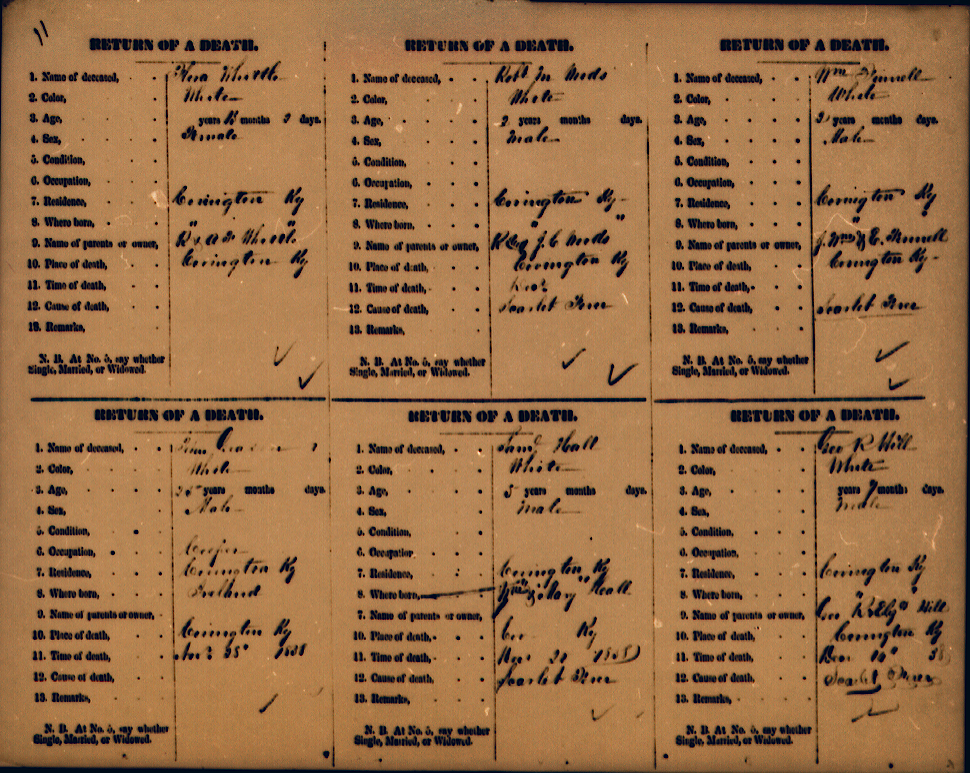 11
RETURN OF A DEATH.
1. Name of deceased,
2. Color, White
3. Age, years months 2 days.
4. Sex, Female
5. Condition,
6. Occupation,
7. Residence, Covington Ky
8. Where born, " "
9. Name of parents or owner,
10. Place of death, Covington Ky
11. Time of death,
12. Cause of death,
13. Remarks,
N. B. At No. 5, say whether
Single, Married, or Widowed.
RETURN OF A DEATH.
1. Name of deceased, Robt Jn Woods
2. Color, White
3. Age, 2 years months days.
4. Sex, Male
5. Condition,
6. Occupation,
7. Residence, Covington Ky
8. Where born, " "
9. Name of parents or owner, J. C Woods
10. Place of death, Covington Ky
11. Time of death,
12. Cause of death, Scarlet Fever
13. Remarks,
N. B. At No. 5, say whether
Single, Married, or Widowed.
RETURN OF A DEATH.
1. Name of deceased, Wm
2. Color, White
3. Age, 2 years months days.
4. Sex, Male
5. Condition,
6. Occupation,
7. Residence, Covington Ky
8. Where born, " "
9. Name of parents or owner,
10. Place of death, Covington Ky
11. Time of death,
12. Cause of death, Scarlet Fever
13. Remarks,
N. B. At No. 5, say whether
Single, Married, or Widowed.
RETURN OF A DEATH.
1. Name of deceased,
2. Color, White
3. Age, 25 years months days.
4. Sex, Male
5. Condition,
6. Occupation, Cooper
7. Residence, Covington Ky
8. Where born, Ireland
9. Name of parents or owner,
10. Place of death, Covington Ky
11. Time of death, 25" 1858
12. Cause of death,
13. Remarks,
N. B. At No. 5, say whether
Single, Married, or Widowed.
RETURN OF A DEATH.
1. Name of deceased, Saml Hall
2. Color, White
3. Age, 5 years months days.
4. Sex, Male
5. Condition,
6. Occupation,
7. Residence, Covington Ky
8. Where born, " "
7. Name of parents or owner, Wm & Mary Hall
10. Place of death, Cov Ky
11. Time of death, 20 1858
12. Cause of death, Scarlet Fever
13. Remarks,
N. B. At No. 5, say whether
Single, Married, or Widowed.
RETURN OF A DEATH.
1. Name of deceased, Geo R Hill
2. Color, White
3. Age, years 7 months days.
4. Sex, Male
5. Condition,
6. Occupation,
7. Residence, Covington Ky
8. Where born, " "
9. Name of parents or owner, Geo R & Elza Hill
10. Place of death, Covington Ky
11. Time of death, 10" 58
12. Cause of death, Scarlet Fever
13. Remarks,
N. B. At No. 5, say whether
Single, Married, or Widowed.